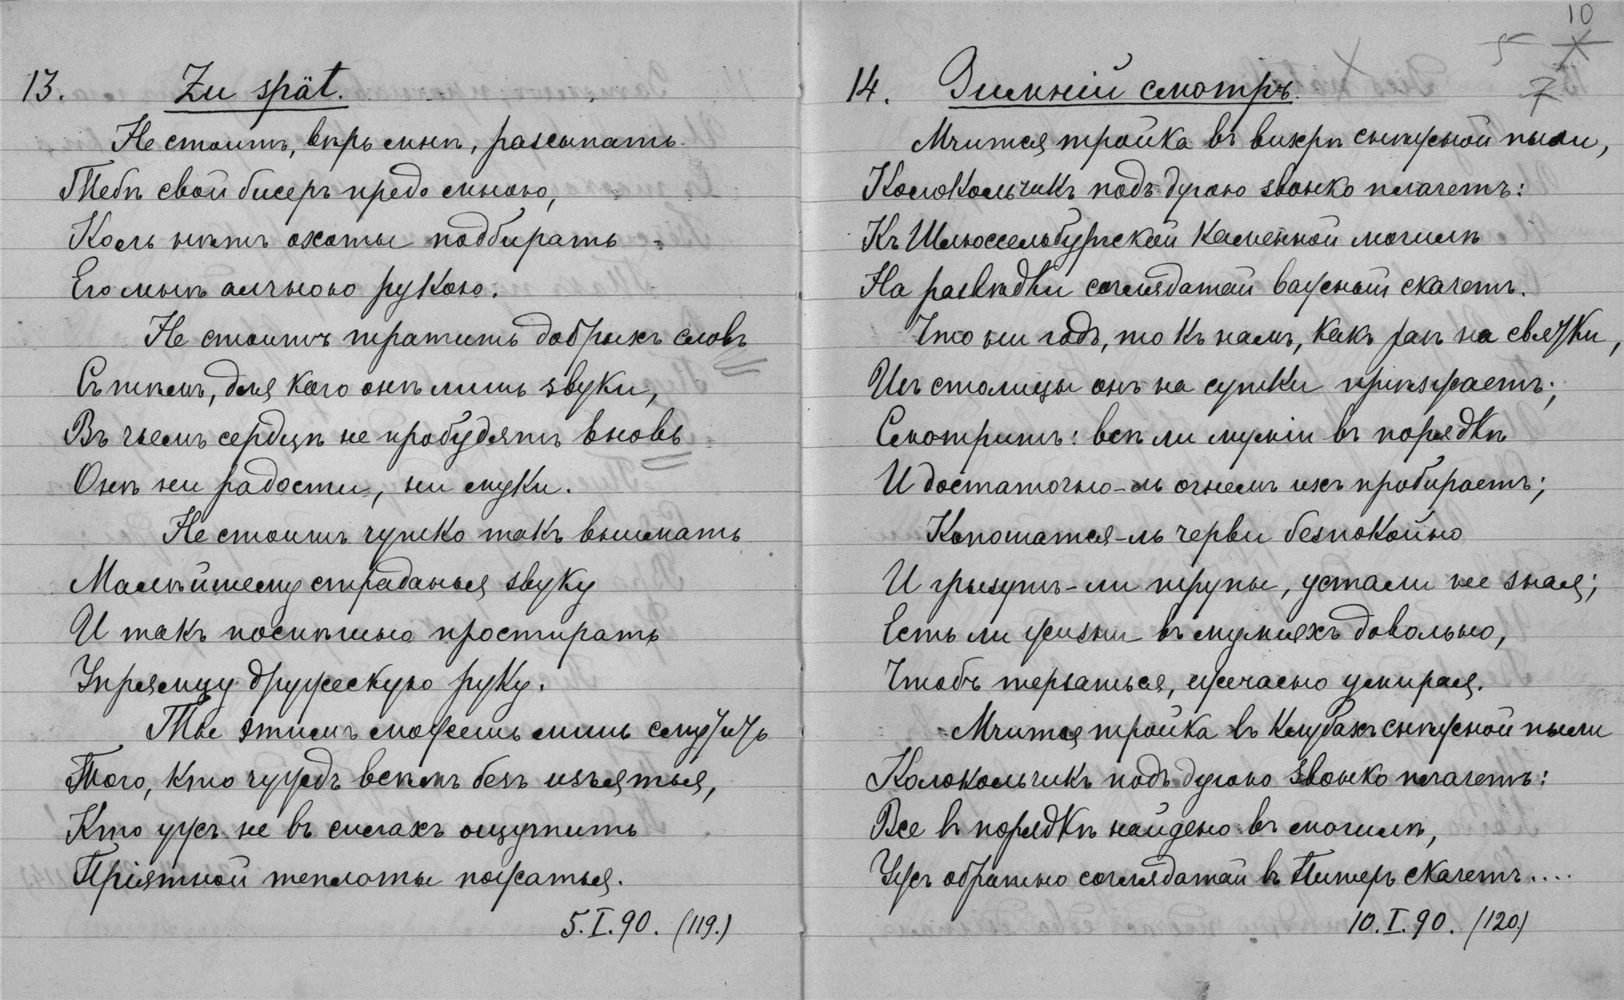 13. Zu spät.
Не стоитъ, вѣрь мнѣ, разсыпать
Тебѣ свой бисеръ предо мною,
Коль нѣтъ охоты подбирать
Его мнѣ алчною рукою.
Не стоитъ тратить добрыхъ словъ
Съ тѣмъ, для кого онѣ лишь звуки,
Въ чьемъ сердцѣ не пробудятъ вновь
Онѣ ни радости, ни муки.
Не стоитъ чутко такъ внимать
Малѣйшему страданья звуку
И такъ поспѣшно простирать
Упрямцу дружескую руку.
Ты этимъ можешь лишь смутить
Того, кто чуждъ всѣмъ безъ изъятья,
Кто ужъ не въ силахъ ощутить
Пріятной теплоты пожатья.
5.I.90. (119.)
10
5 X
7
14. Зимній смотръ.
Мчится тройка въ вихрѣ снѣжной пыли,
Колокольчикъ подъ дугою звонко плачетъ:
Къ Шлюссельбургской каменной могилѣ
На развѣдки соглядатай важный скачетъ.
Что ни годъ, то къ намъ, какъ разъ на святки,
Изъ столицы онъ на сутки пріѣзжаетъ;
Смотритъ: всѣ ли муміи въ порядкѣ
И достаточно-ль огнемъ ихъ пробираетъ;
Копошатся-ль черви безпокойно
И грызутъ-ли трупы, устали не зная;
Есть ли жизни въ муміяхъ довольно,
Чтобъ терзаться, ежечасно умирая.
Мчится тройка въ клубахъ снѣжной пыли
Колокольчикъ подъ дугою звонко плачетъ:
Все въ порядкѣ найдено въ могилѣ,
Ужъ обратно соглядатай въ Питеръ скачетъ....
10.I.90. (120)